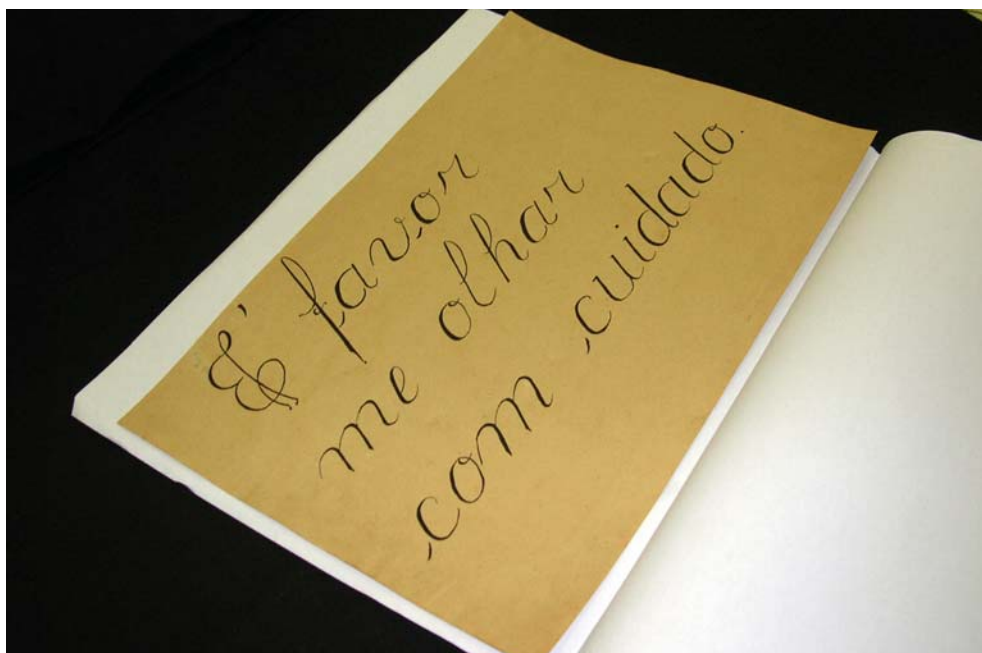 E' favor
me olhar
com cuidado.